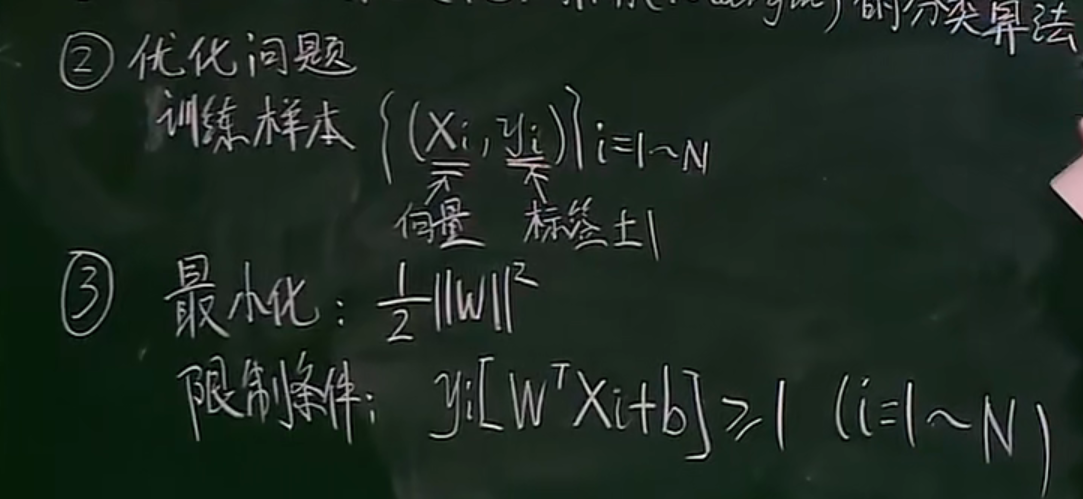 的分类算法
② 优化问题
训练样本 {(Xi, yi)} i=1~N
向量 标签±1
③ 最小化: 1/2 ||W||²
限制条件: yi[WᵀXi+b]≥1 (i=1~N)